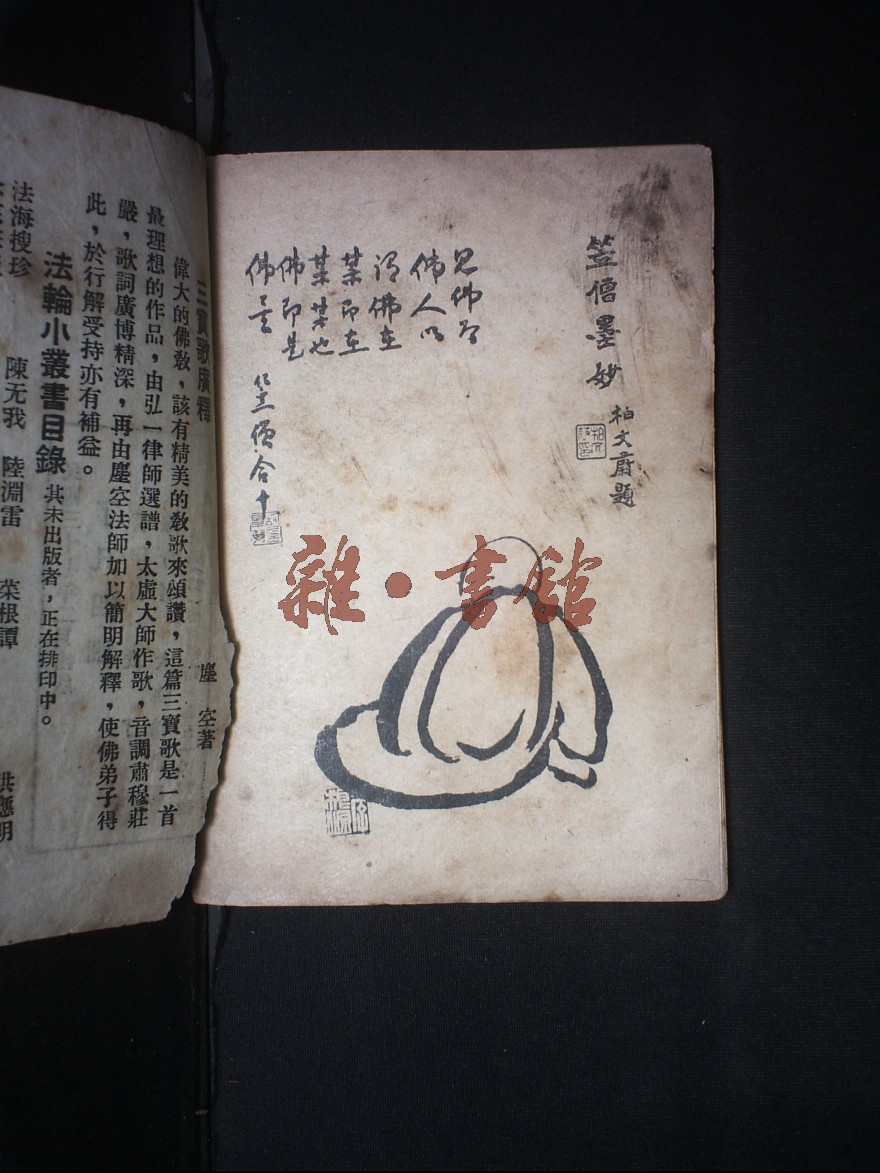 笠僧墨妙
柏文蔚題
見佛
佛人以
謂佛在
某即在
某某也
佛即是
佛
笠僧合十
雜·書館
三寶歌廣釋 塵空著
偉大的佛教,該有精美的教歌來頌讚,這篇三寶歌是一首
最理想的作品,由弘一律師選譜,太虛大師作歌,音調肅穆莊
嚴,歌詞廣博精深,再由塵空法師加以簡明解釋,使佛弟子得
此,於行解受持亦有補益。
法輪小叢書目錄 其未出版者,正在排印中。
法海搜珍 陳无我 陸淵雷 菜根譚 洪應明